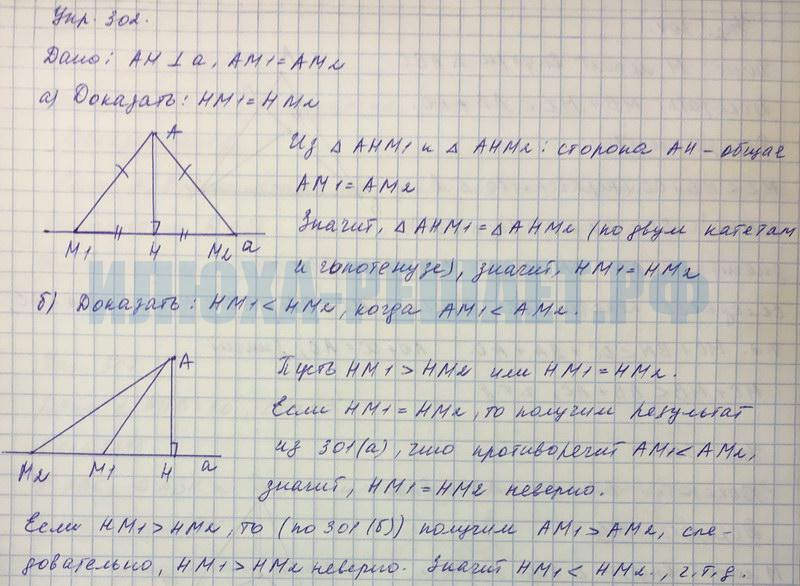 Упр. 302.
Дано: AH ⊥ a, AM1 = AM2
а) Доказать: HM1 = HM2
A
M1 H M2 a
Из △ AHM1 и △ AHM2: сторона AH - общая
AM1 = AM2
Значит, △ AHM1 = △ AHM2 (по двум катетам
и гопотенузе), значит, HM1 = HM2
ИЛЮХА-РЕШАЕТ.РФ
б) Доказать: HM1 < HM2, когда AM1 < AM2.
A
M2 M1 H a
Пусть HM1 > HM2 или HM1 = HM2.
Если HM1 = HM2, то получим результат
из 301(а), что противоречит AM1 < AM2,
значит, HM1 = HM2 неверно.
Если HM1 > HM2, то (по 301 (б)) получим AM1 > AM2, сле-
довательно, HM1 > HM2 неверно. Значит HM1 < HM2., ч.т.д.